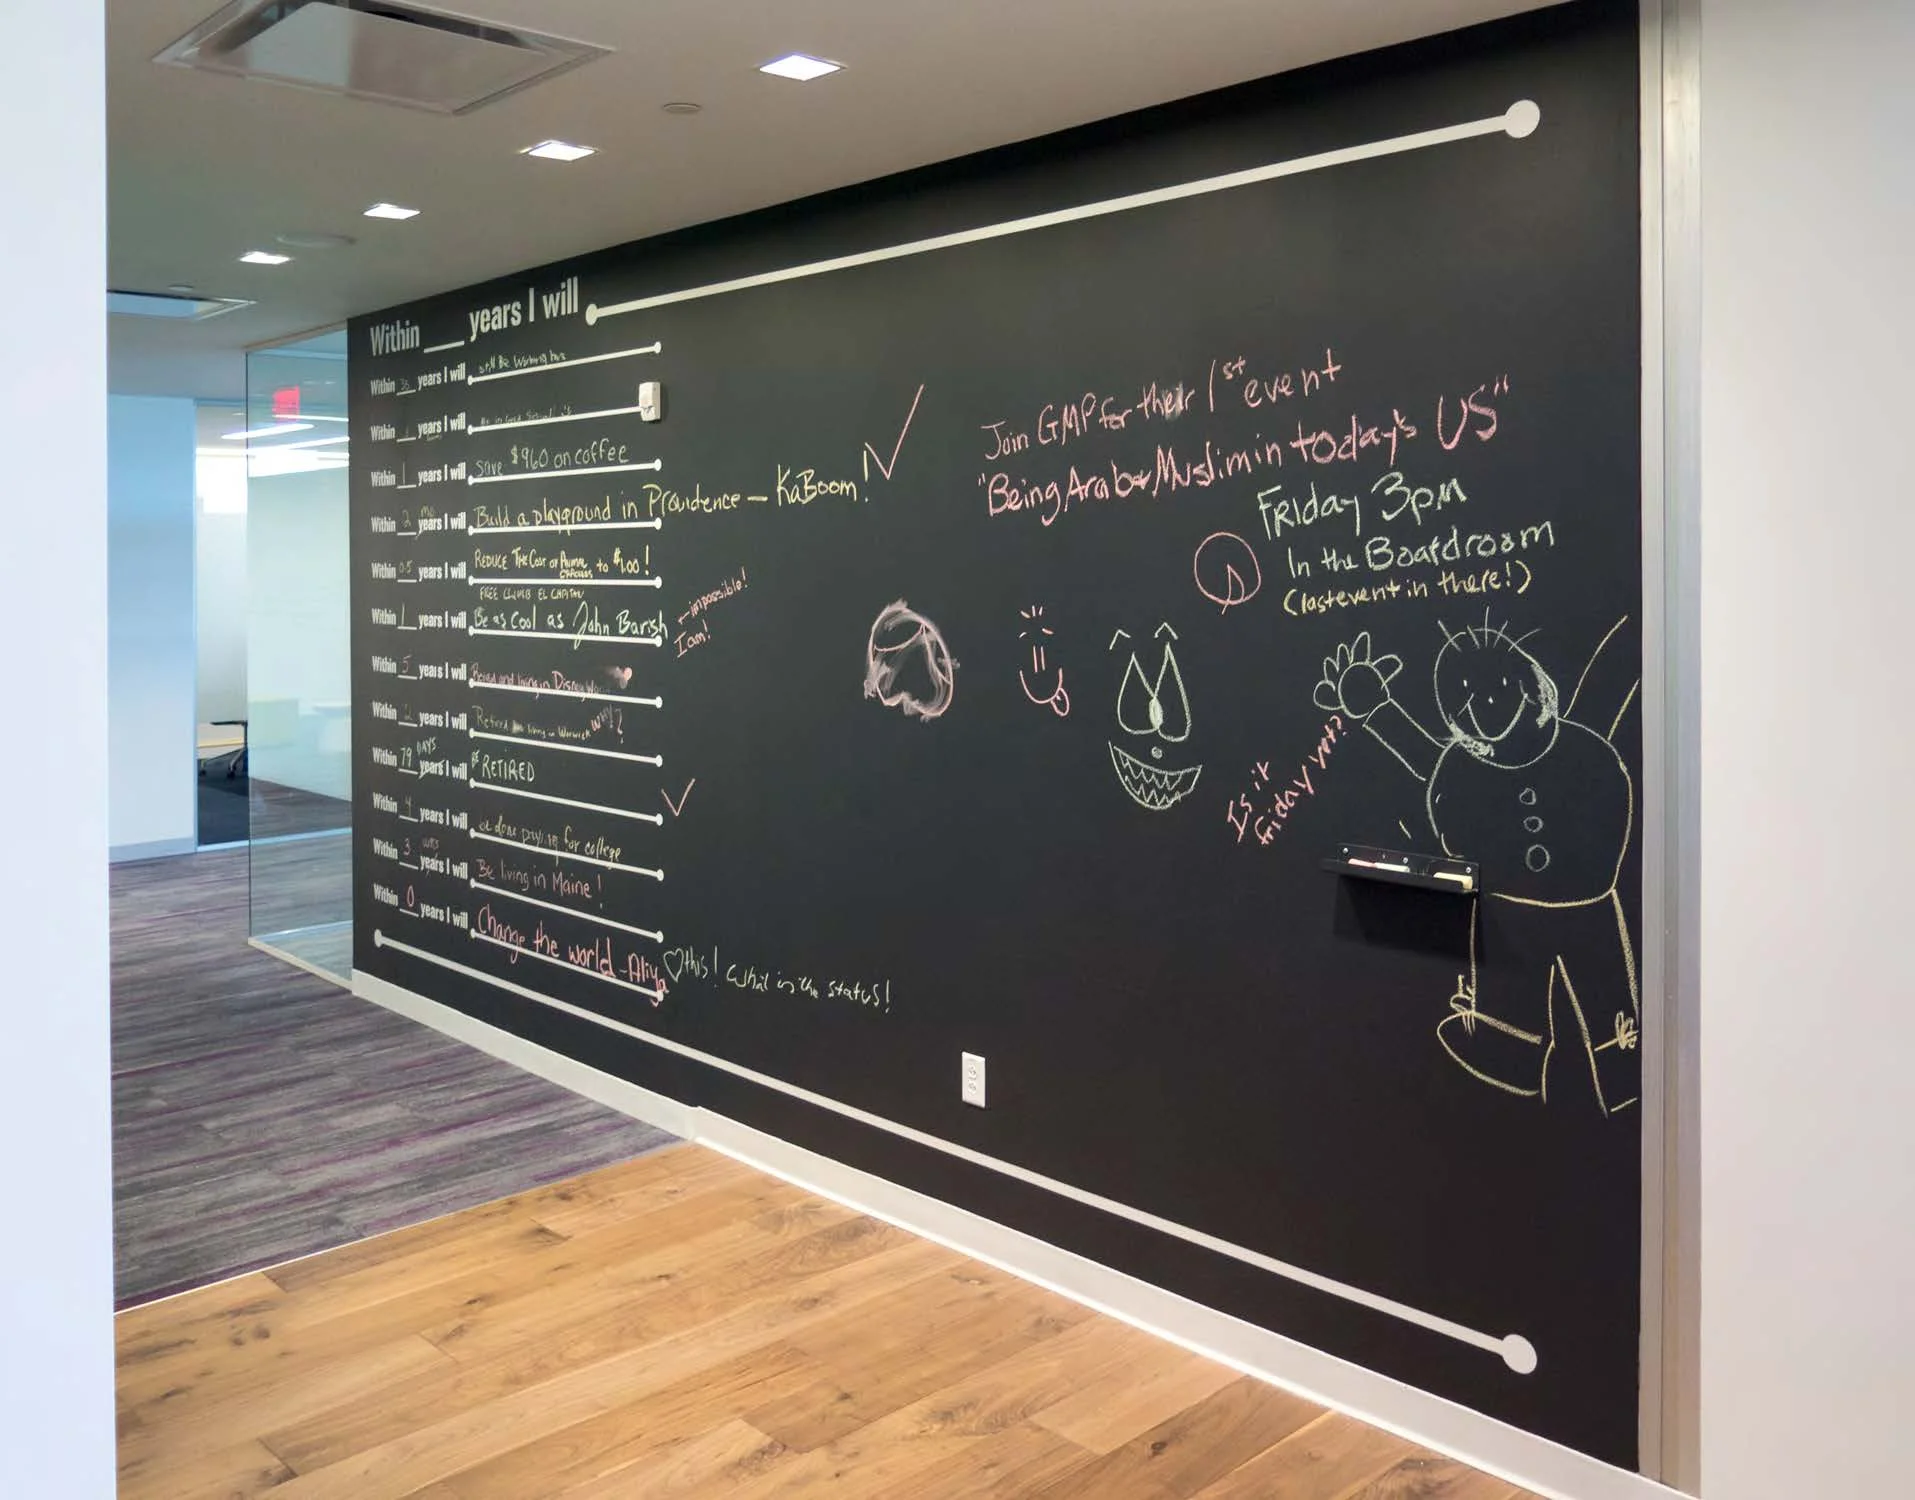 Within ___ years I will
Within 35 years I will still Be Working here
Within years I will
Within 1 years I will Save $960 on coffee
Within 2 mo years I will Build a playground in Providence – KaBoom!
Within 0.5 years I will REDUCE THE COST OF ANIMAL CRACKERS to $1.00!
FREE CLIMB EL CAPITAN
Within 1 years I will Be as cool as John Barish
←impossible!
I am!
Within 5 years I will Retired and living in Disney
Within 2 years I will Retired living in Warwick WHY?
Within 79 DAYS years I will BE RETIRED
Within 4 years I will be done paying for college
Within 3 wks years I will Be living in Maine!
Within 0 years I will Change the world - Aliya
♡ this! What is the status!
Join GMP for their 1st event
"Being Arab or Muslim in today's US"
Friday 3pm
In the Boardroom
(last event in there!)
Is it
friday yet?